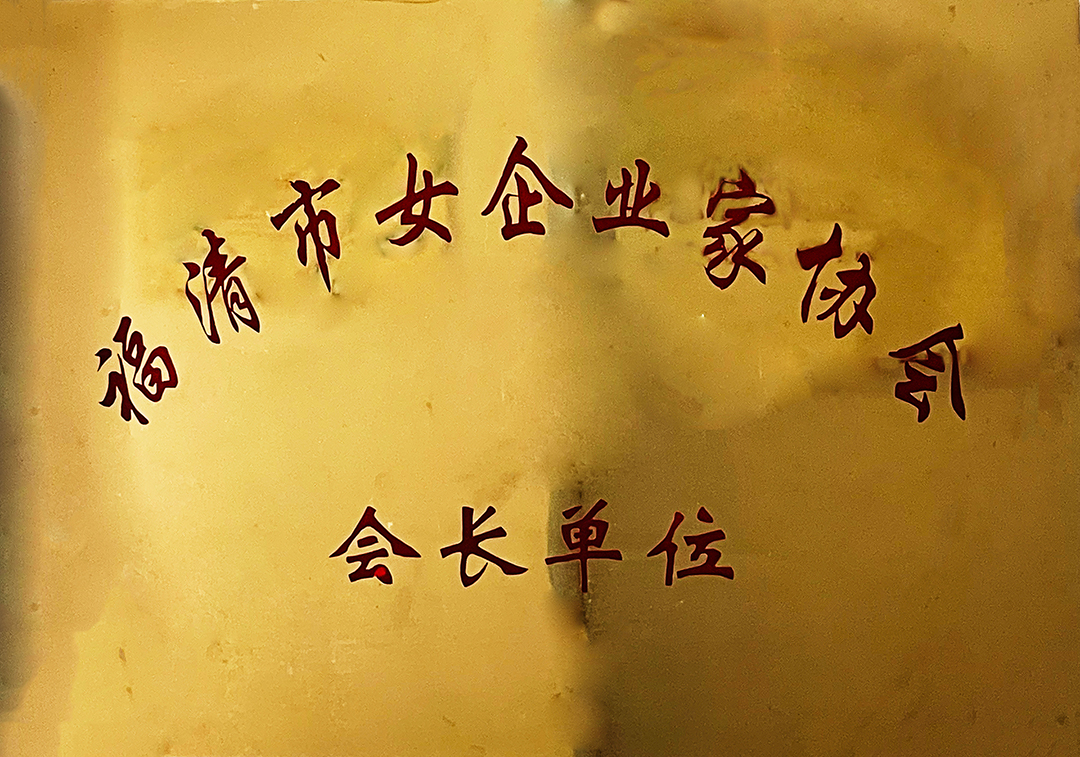 福清市女企业家协会
会长单位